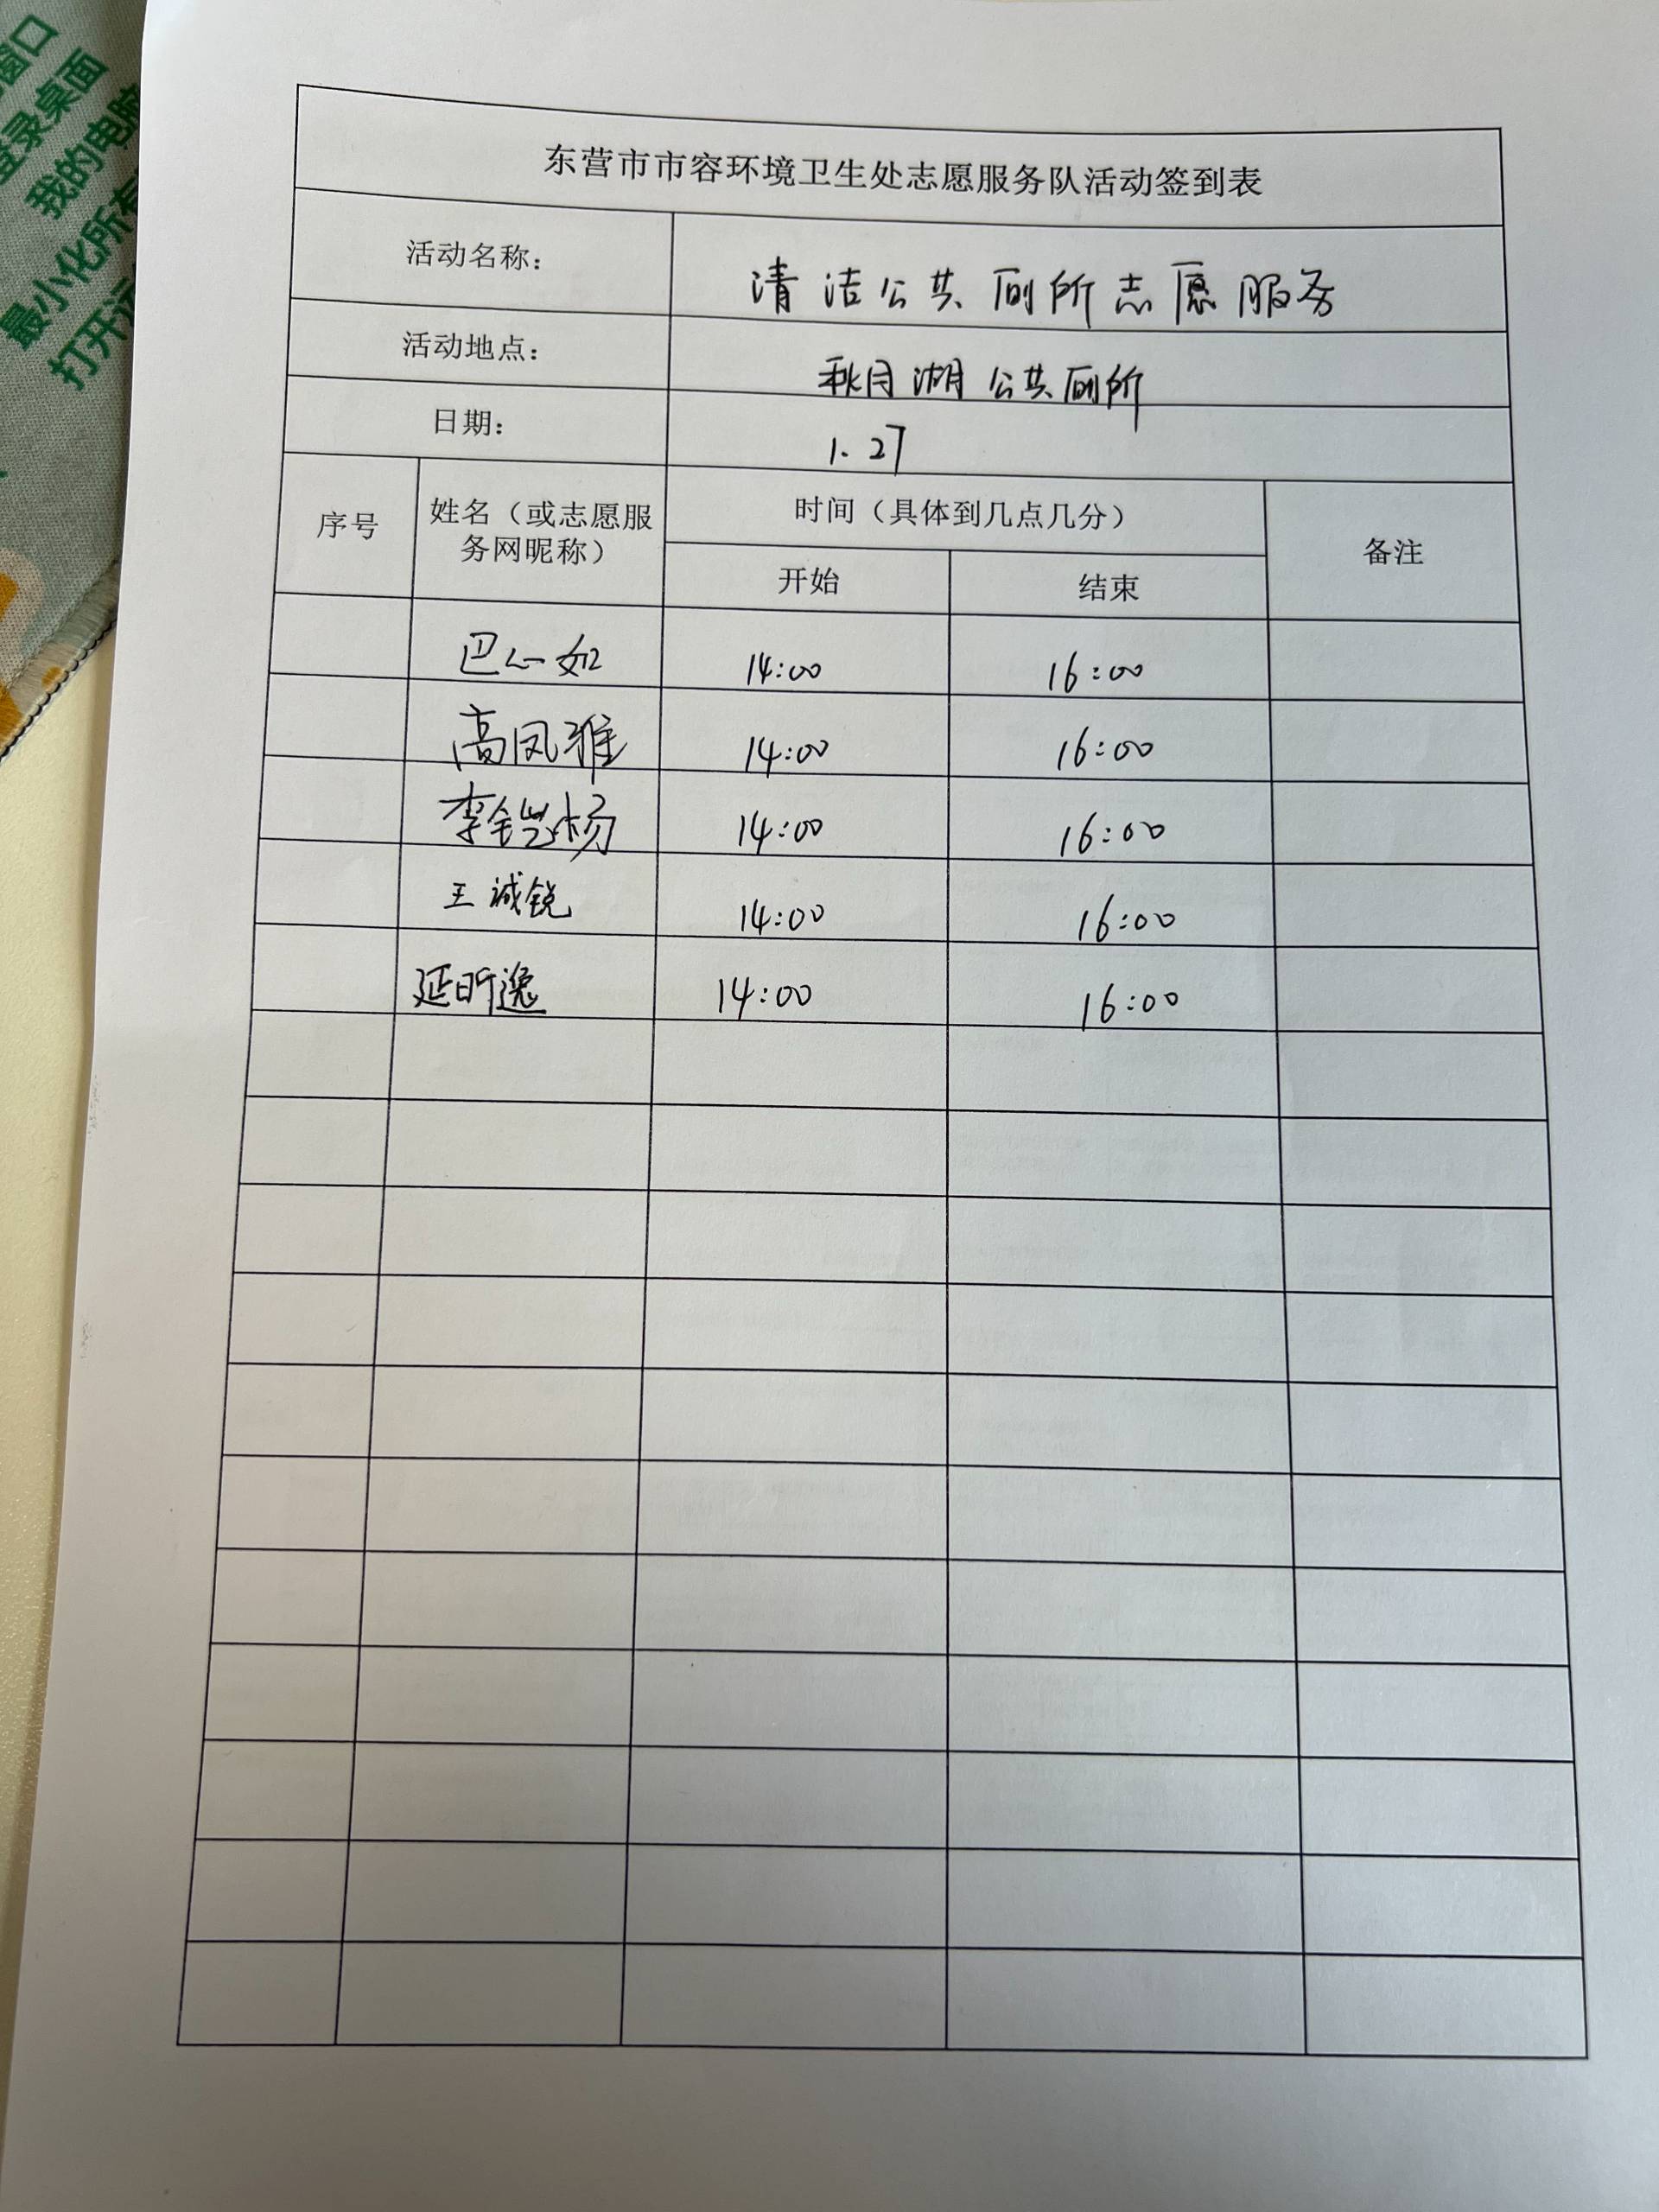 窗口
登录桌面
我的电脑
最小化所有
打开
东营市市容环境卫生处志愿服务队活动签到表
活动名称： 清洁公共厕所志愿服务
活动地点： 秋月湖公共厕所
日期： 1.27
序号 姓名（或志愿服务网昵称） 时间（具体到几点几分） 备注
开始 结束
巴心如 14:00 16:00
高凤雅 14:00 16:00
李铠杨 14:00 16:00
王诚锐 14:00 16:00
延昕逸 14:00 16:00